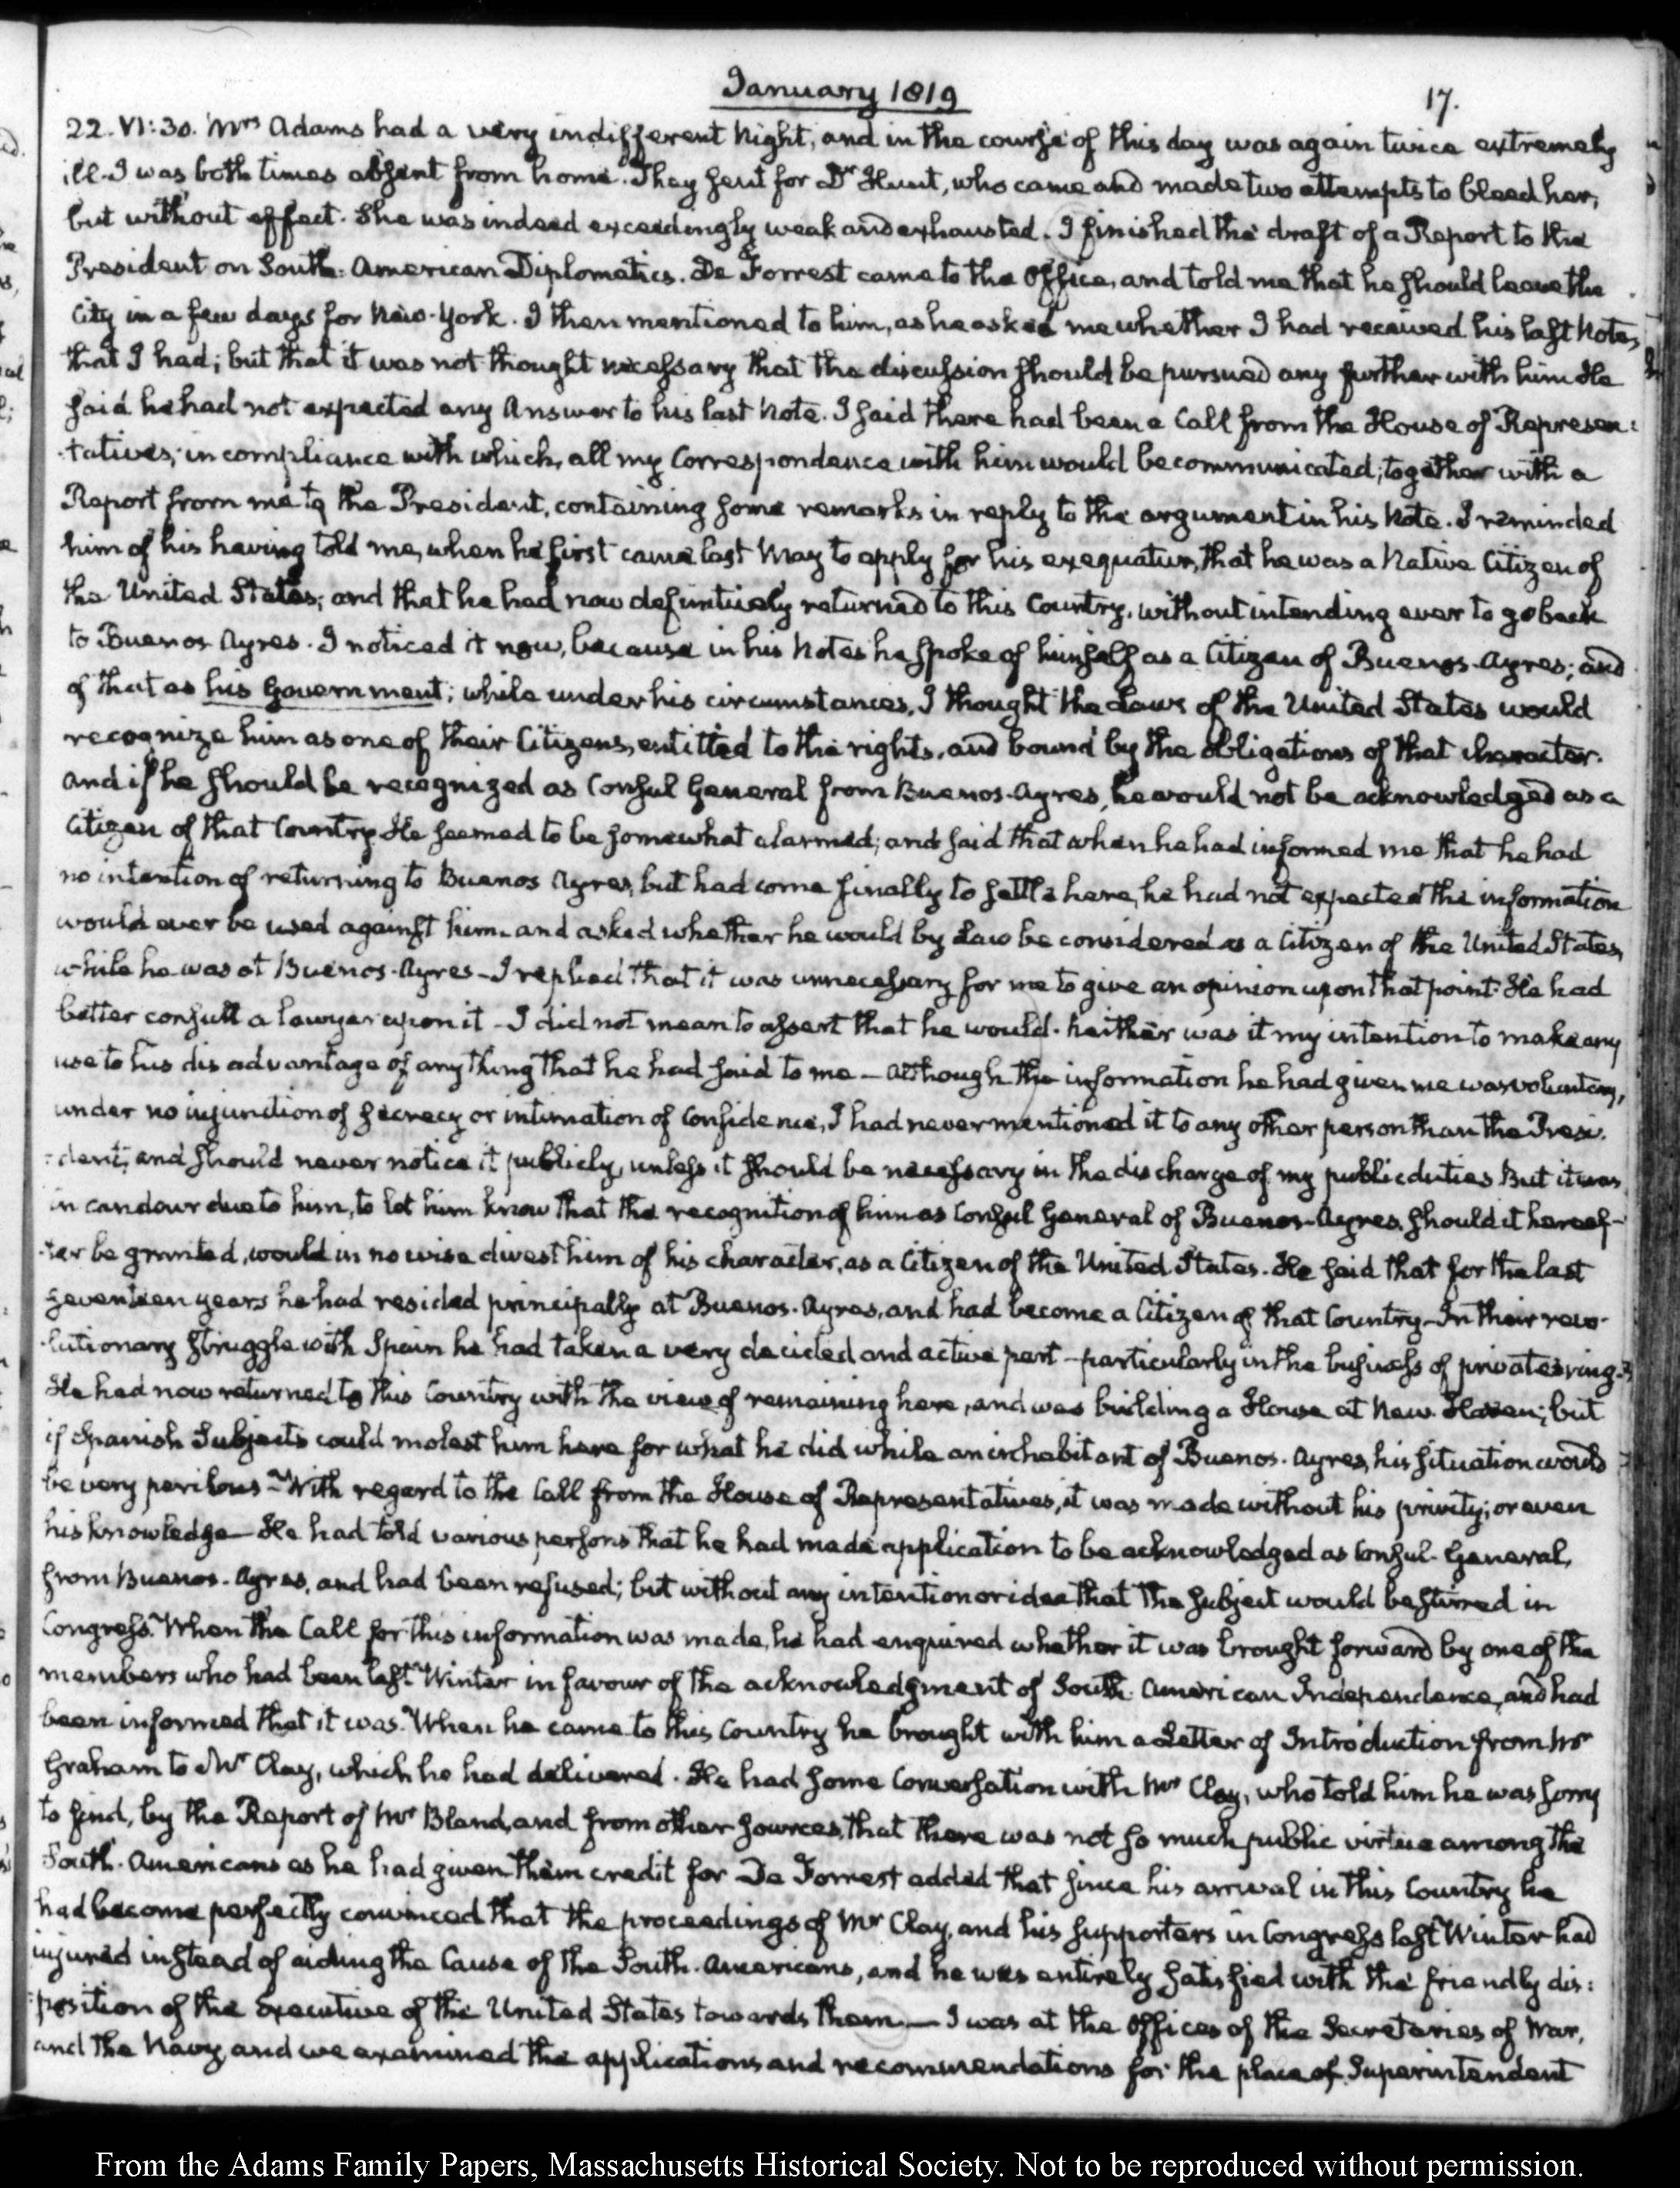 January 1819
17.
22. VI:30. Mrs Adams had a very indifferent Night, and in the course of this day was again twice extremely
ill. I was both times absent from home. They sent for Dr Hunt, who came and made two attempts to bleed her,
but without effect. She was indeed exceedingly weak and exhausted. I finished the draft of a Report to the
President on South-American Diplomatics. De Forrest came to the Office, and told me that he should leave the
City in a few days for New-York. I then mentioned to him, as he asked me whether I had received his last Note,
that I had; but that it was not thought necessary that the discussion should be pursued any further with him He
said he had not expected any Answer to his last Note. I said there had been a Call from the House of Represen:
:tatives, in compliance with which, all my Correspondence with him would be communicated, together with a
Report from me to the President, containing some remarks in reply to the argument in his Note. I reminded
him of his having told me, when he first came last May to apply for his exequatur, that he was a Native Citizen of
the United States; and that he had now definitively returned to this Country, without intending ever to go back
to Buenos Ayres. I noticed it now, because in his Notes he spoke of himself as a Citizen of Buenos-Ayres; and
of that as his Government; while under his circumstances, I thought the Laws of the United States would
recognize him as one of their Citizens, entitled to the rights, and bound by the obligations of that character.
And if he should be recognized as Consul General from Buenos-Ayres, he would not be acknowledged as a
Citizen of that Country. He seemed to be somewhat alarmed; and said that when he had informed me that he had
no intention of returning to Buenos Ayres, but had come finally to settle here, he had not expected the information
would ever be used against him. and asked whether he would by Law be considered as a Citizen of the United States,
while he was at Buenos-Ayres—I replied that it was unnecessary for me to give an opinion upon that point. He had
better consult a lawyer upon it—I did not mean to assert that he would. Neither was it my intention to make any
use to his disadvantage of any thing that he had said to me—Although the information he had given me was voluntary,
under no injunction of secrecy or intimation of confidence, I had never mentioned it to any other person than the Presi:
:dent; and should never notice it publicly, unless it should be necessary in the discharge of my public duties But it was
in candour due to him, to let him know that the recognition of him as Consul General of Buenos-Ayres, should it hereaf-
:ter be granted, would in no wise divest him of his character, as a Citizen of the United States. He said that for the last
seventeen years he had resided principally at Buenos-Ayres, and had become a Citizen of that Country—In their revo-
:lutionary struggle with Spain he had taken a very decided and active part—particularly in the business of privateering—
He had now returned to this Country with the view of remaining here, and was building a House at New-Haven; but
if Spanish Subjects could molest him here for what he did while an inhabitant of Buenos-Ayres, his situation would
be very perilous—With regard to the Call from the House of Representatives, it was made without his privity; or even
his knowledge—He had told various persons that he had made application to be acknowledged as Consul-General,
from Buenos-Ayres, and had been refused; but without any intention or idea that the subject would be stirred in
Congress. When the Call for this information was made, he had enquired whether it was brought forward by one of the
members who had been last Winter in favour of the acknowledgment of South-American Independence, and had
been informed that it was. When he came to this Country he brought with him a Letter of Introduction from Mr
Graham to Mr Clay, which he had delivered. He had some Conversation with Mr Clay, who told him he was sorry
to find, by the Report of Mr Bland, and from other sources, that there was not so much public virtue among the
South-Americans as he had given them credit for De Forrest added that since his arrival in this Country he
had become perfectly convinced that the proceedings of Mr Clay, and his supporters in Congress last Winter had
injured instead of aiding the Cause of the South-Americans, and he was entirely satisfied with the friendly dis:
:position of the Executive of the United States towards them.—I was at the Offices of the Secretaries of War,
and the Navy, and we examined the applications and recommendations for the place of Superintendent
From the Adams Family Papers, Massachusetts Historical Society. Not to be reproduced without permission.